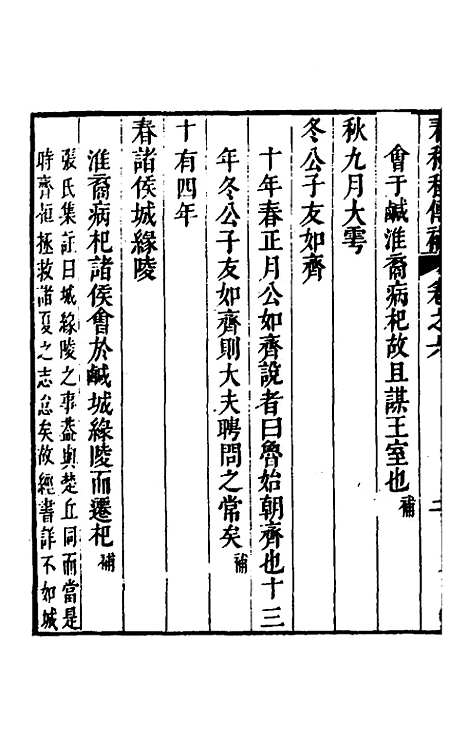 春秋稗傳補 卷之六 二
會于鹹淮裔病杞故且謀王室也 補
秋九月大雩
冬公子友如齊
十年春正月公如齊說者曰魯始朝齊也十三
年冬公子友如齊則大夫聘問之常矣 補
十有四年
春諸侯城緣陵
淮裔病杞諸侯會於鹹城緣陵而遷杞 補
張氏集註曰城緣陵之事蓋與楚丘同而當是
時齊桓拯救諸夏之志怠矣故經書詳不如城